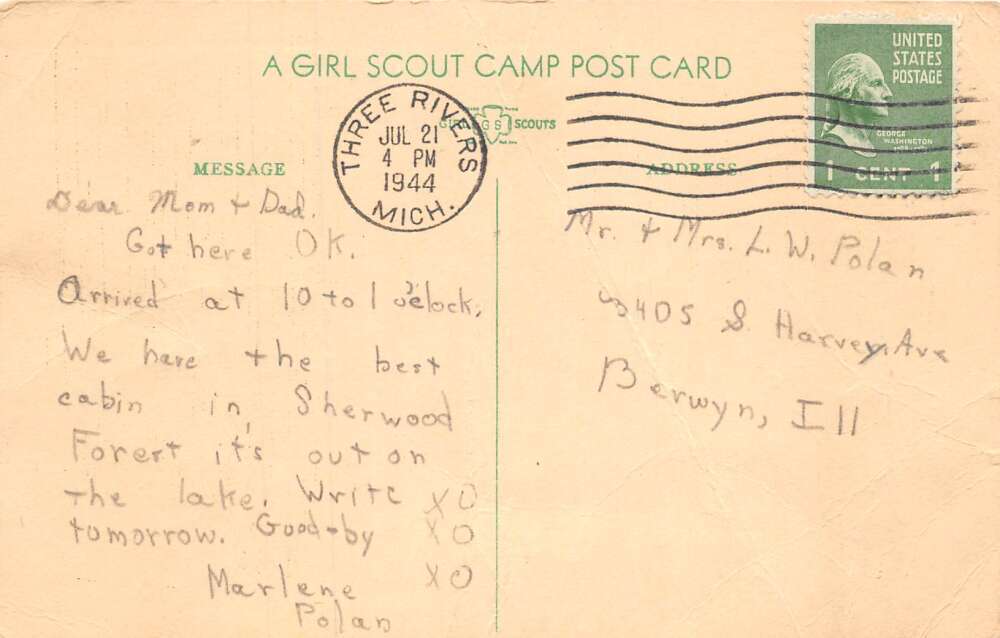 A GIRL SCOUT CAMP POST CARD
UNITED
STATES
POSTAGE
GEORGE
WASHINGTON
1 CENT 1
THREE RIVERS
JUL 21
4 PM
1944
MICH.
GIRL GS SCOUTS
MESSAGE
ADDRESS
Dear Mom + Dad.
Got here OK.
Arrived at 10 to 1 o'clock.
We have the best
cabin in Sherwood
Forest it's out on
the lake. Write XO
tomorrow. Good-by XO
Marlene XO
Polan
Mr. + Mrs. L. W. Polan
3405 S. Harvey, Ave
Berwyn, Ill